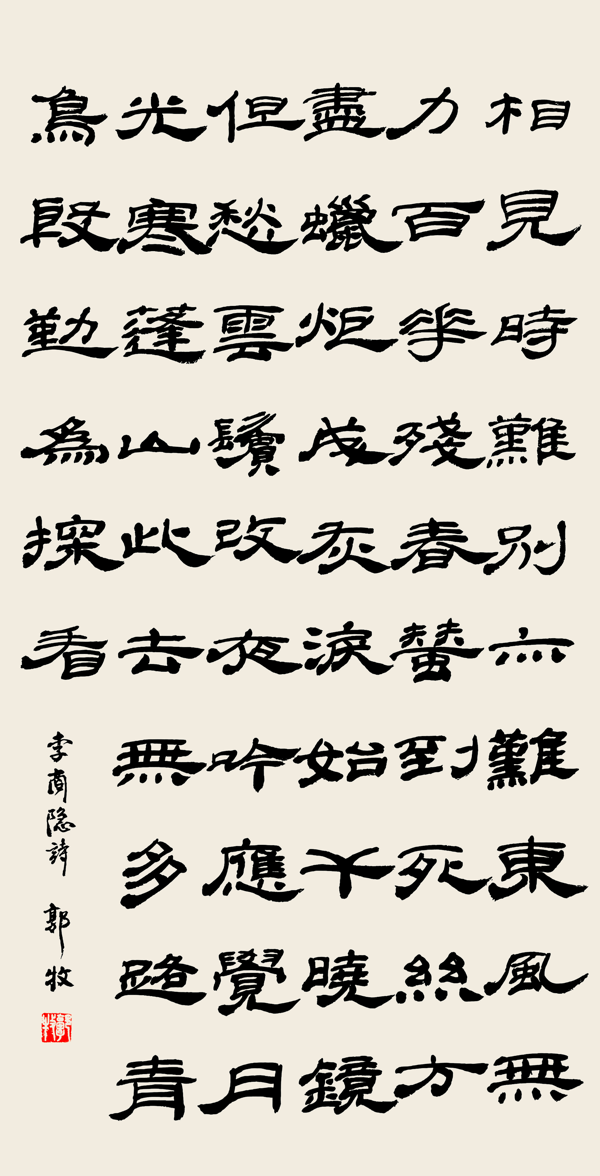 相見時難別亦難東風無
力百華殘春蠶到死絲方
盡蠟炬成灰淚始干曉鏡
但愁雲鬢改夜吟應覺月
光寒蓬山此去無多路青
鳥殷勤為探看
李商隐詩 郭牧